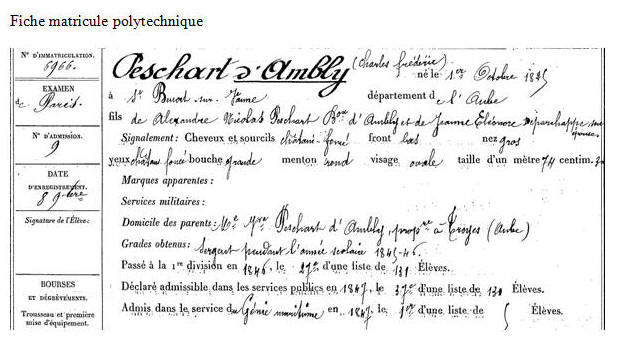 Fiche matricule polytechnique
N° D'IMMATRICULATION.
6966.
EXAMEN
de Paris
N° D'ADMISSION.
9
DATE
D'ENREGISTREMENT.
8 9bre
Signature de l'Élève:
BOURSES
ET DÉGRÈVEMENTS.
Trousseau et première
mise d'équipement.
Peschart d'Ambly (Charles Frédéric) né le 1er Octobre 1825
à St Benoit-sur-Vanne département de l'Aube
fils de Alexandre Nicolas Peschart Bon d'Ambly et de Jeanne Eléonore
Signalement: Cheveux et sourcils châtain-foncé front bas nez gros
yeux châtain foncé bouche grande menton rond visage ovale taille d'un mètre 74 centim.
Marques apparentes:
Services militaires:
Domicile des parents: Peschart d'Ambly, propre à Troyes (Aube)
Grades obtenus: Sergent pendant l'année scolaire 1845-46.
Passé à la 1re division en 1846, le 27e d'une liste de 131 Élèves.
Déclaré admissible dans les services publics en 1847, le 37e d'une liste de 130 Élèves.
Admis dans le service du Génie maritime en 1847, le 1er d'une liste de 5 Élèves.